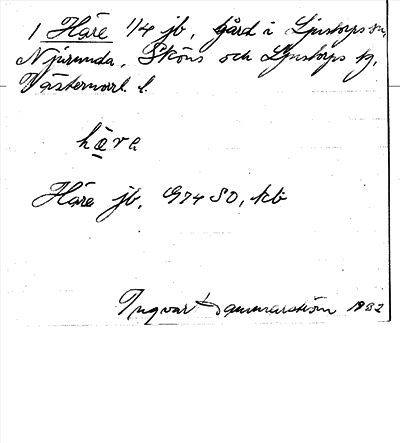 1 Häre 1/4 jb, gård i Ljustorps sn,
Njurunda, Sköns och Ljustorps tg,
Västernorrl. l.
hære
Häre jb, G974 SO, kb
Ingvar Hammarström 1932